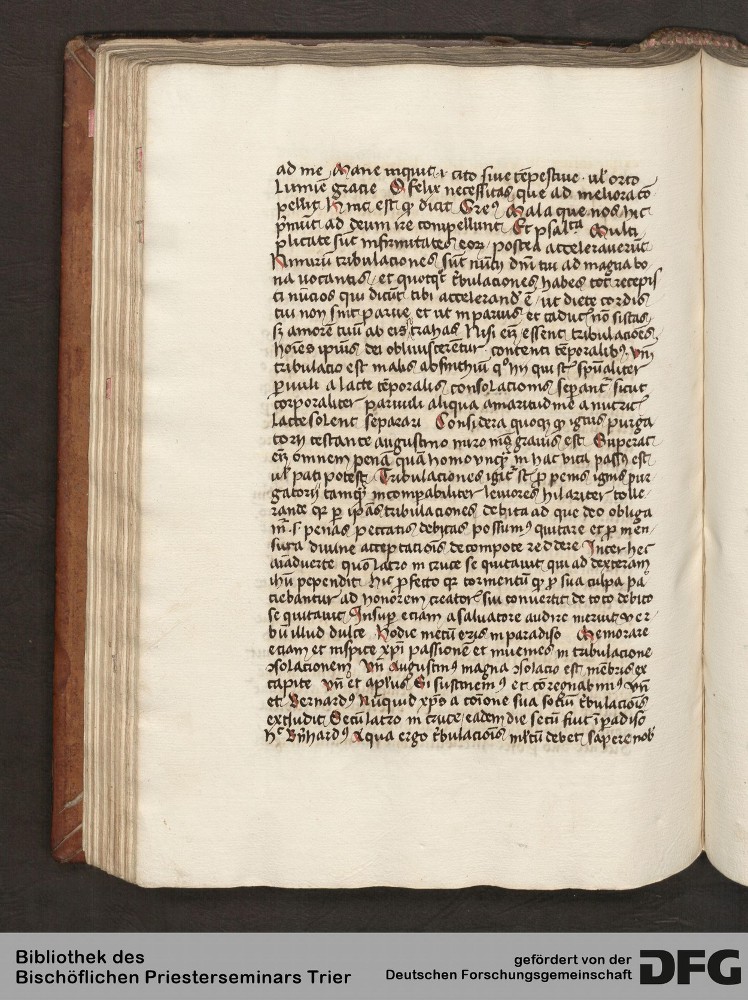 ad me Mane inquit .i. cito siue tēpestiue . ul' orto
lumīe gracie O felix necessitas que ad meliora cō
pellit Hinc est qꝫ dicit Greꝰ Mala que nos hic
p̄mūt ad deum ire compellunt Et psalta Multi
plicate sūt infirmitates eorꝫ postea accelerauerūt
Nimirū tribulaciones sūt nūcij dn̄i tui ad magna bo
na uocantis et quotqt t̄bulaciones habes tot recepis
ti nūcios qui dicūt tibi accelerand' ē ut diete cordis
tui non sint parue et ut in paruis et caduc' nō sistas
sꝫ amorē tuū ab eis t̄ahas Nisi em̄ essent tribulacōes
hoīes ipius dei obliuiscerentur contenti tēporalibꝰ vn̄
tribulacio est malis absinthiū qo hij qui st' spūaliter
puuli a lacte tēporalis consolacionis sepant' sicut
corporaliter paruuli aliqua amaritudine a nutric'
lacte solent separari Considera quoqꝫ qꝫ ignis purga
torij testante augustino miro mō grauis est Superat
em̄ omnem penā quā homo vnqꝫ in hac vita passꝰ est
ul' pati potest Tribulaciones igit' st' p penis ignis pur
gatorij tamqꝫ incompabiliter leuiores hilariter tolle
rande qr p ip̄as tribulaciones debita ad que deo obliga
mr .s. penas peccatis debitas possumꝰ quitare et p men
sura diuine acceptacioīs de compote reddere Inter hec
aīaduerte quō latro in cruce se quitauit qui ad dexteram
ihū pependit hic pfecto qr tormentū qꝫ p sua culpa pa
ciebantur ad honorem creator' sui conuertit de toto debito
se quitauit Insup eciam a saluatore audire meruit ver
bū illud dulce Hodie mecū eris in paradiso Memorare
eciam et inspice xp̄i passionē et inuenies in tribulacione
ꝯsolacionem Vn̄ Augustinꝰ magna ꝯsolacio est mēbris ex
capite vn̄ et apl'us Si sustinemꝰ et cōregnabimꝰ vn̄
et Bernardꝰ Nūquid xp̄s a cōione sua socīu t̄bulacioīs
excludit Secū latro in cruce eadem die secū fuit ī padiso
hec Bn̄hardꝰ Aqua ergo t̄bulacioīs ml'tū debet sapere nob'
Bibliothek des
Bischöflichen Priesterseminars Trier
gefördert von der
Deutschen Forschungsgemeinschaft
DFG